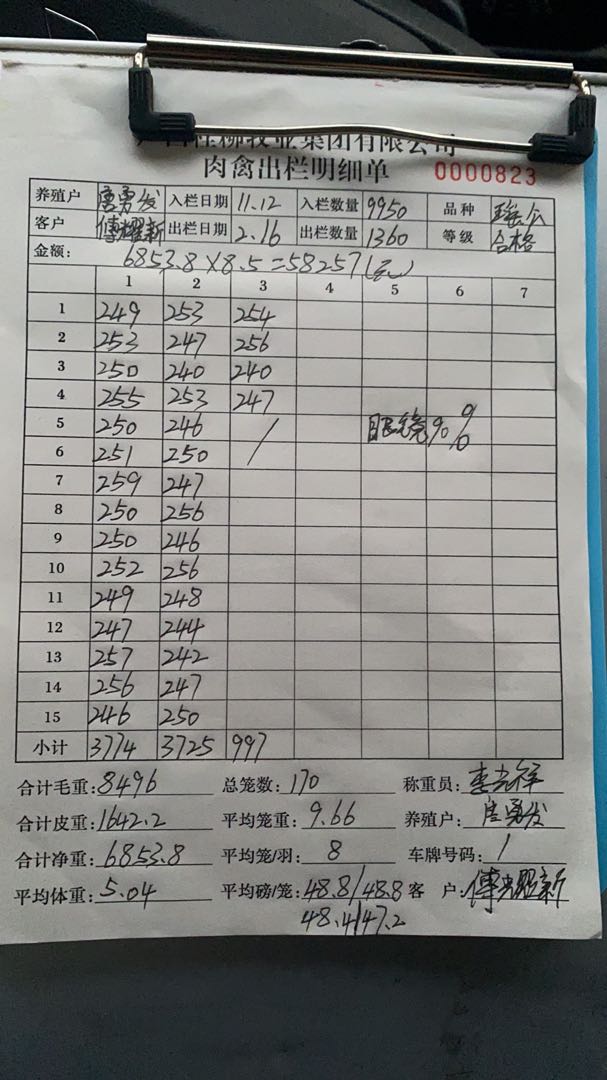 广西桂柳牧业集团有限公司
肉禽出栏明细单 0000823
养殖户 唐勇发 入栏日期 11.12 入栏数量 9950 品种 瑶公
客户 傅耀新 出栏日期 2.16 出栏数量 1360 等级 合格
金额: 6853.8×8.5=58257(元)
1 2 3 4 5 6 7
1 249 253 254
2 253 247 256
3 250 240 240
4 255 253 247
5 250 246 / 眼镜90%
6 251 250
7 259 247
8 250 256
9 250 246
10 252 256
11 249 248
12 247 244
13 257 242
14 256 247
15 246 250
小计 3774 3725 997
合计毛重:8496 总笼数:170 称重员:李光祥
合计皮重:1642.2 平均笼重:9.66 养殖户:唐勇发
合计净重:6853.8 平均笼/羽:8 车牌号码:1
平均体重:5.04 平均磅/笼:48.8/48.8 客 户:傅耀新
48.4/47.2